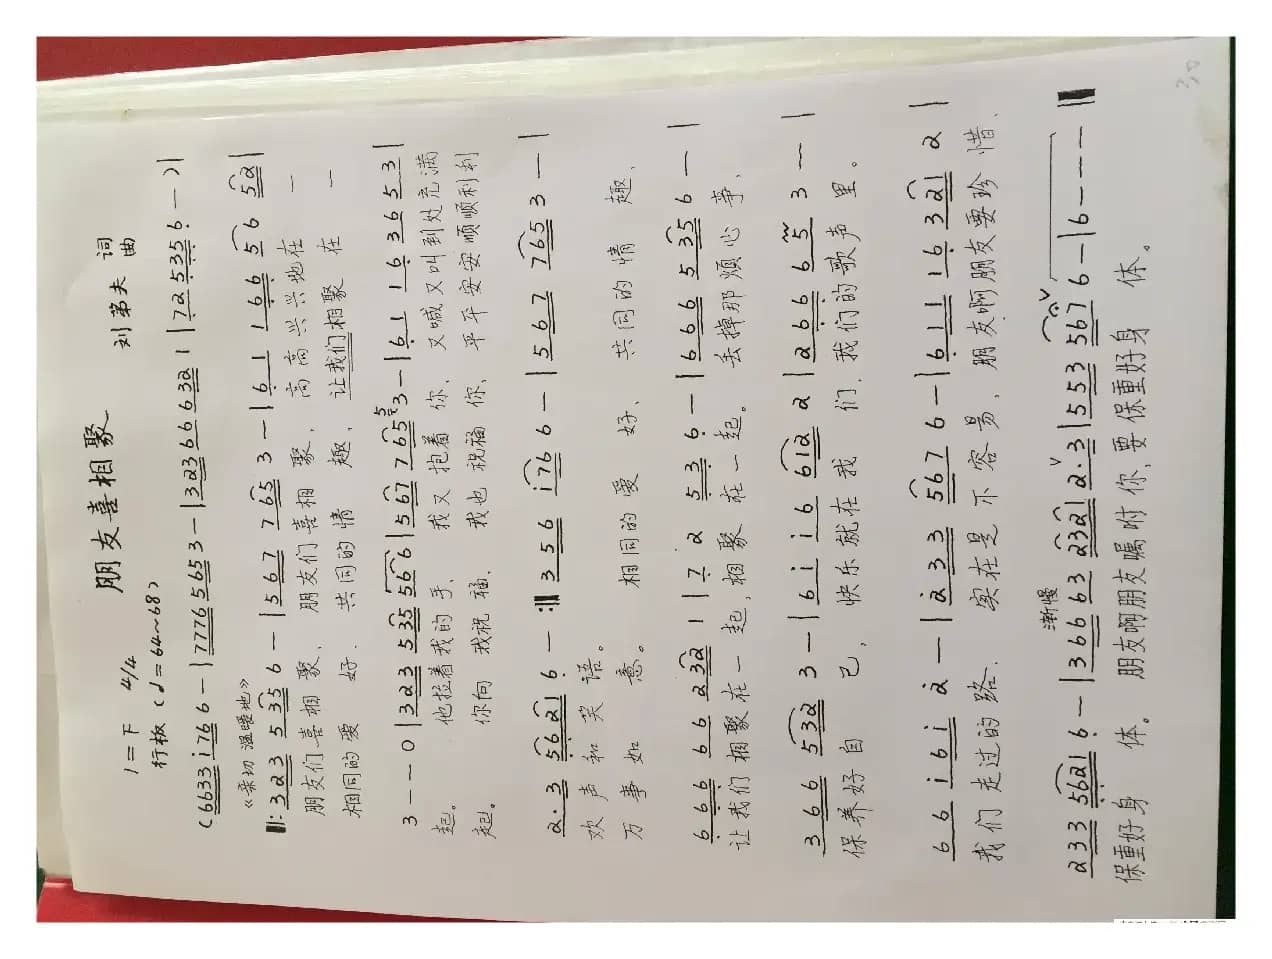 朋友喜相聚
1=F 4/4
刘弟夫 词曲
行板(♩=64~68)
(6633 i766 — | 7776 5653 — | 323 66 632 1 | 72 5356 — ) |
《亲切 温暖地》
‖: 323 5356 — | 567 765 3 — | 61 166 56 52 |
朋友们喜相聚、朋友们喜相聚、高高兴兴地在一
相同的爱好、共同的情趣、让我们相聚在一
3 — — 0 | 323 535 566 | 567 765 3 — | 61 16 36 53 |
起。他拉着我的手、我又抱着你、又喊又叫到处充满
起。你向我祝福、我也祝福你、平平安安顺顺利利
2·3 56216 — :‖ 356 i76 6 — | 567 765 3 — |
欢声和笑语。相同的爱好、共同的情趣、
万事如意。
666 66 232 1 | 72 533 6 — | 666 5356 — |
让我们相聚在一起,相聚在一起。丢掉那烦心事、
366 532 3 — | 6i i6 612 2 | 266 65 3 — |
保养好自己,快乐就在我们、我们的歌声里。
66 i6i 2 — | 233 567 6 — | 611 16 321 2 |
我们走过的路、实在是不容易、朋友啊朋友要珍惜、
渐慢
233 56216 — | 366 63 2321 2·3 | 553 567 6 — | 6 — — — ‖
保重好身体。朋友啊朋友嘱咐你,要保重好身体。
30